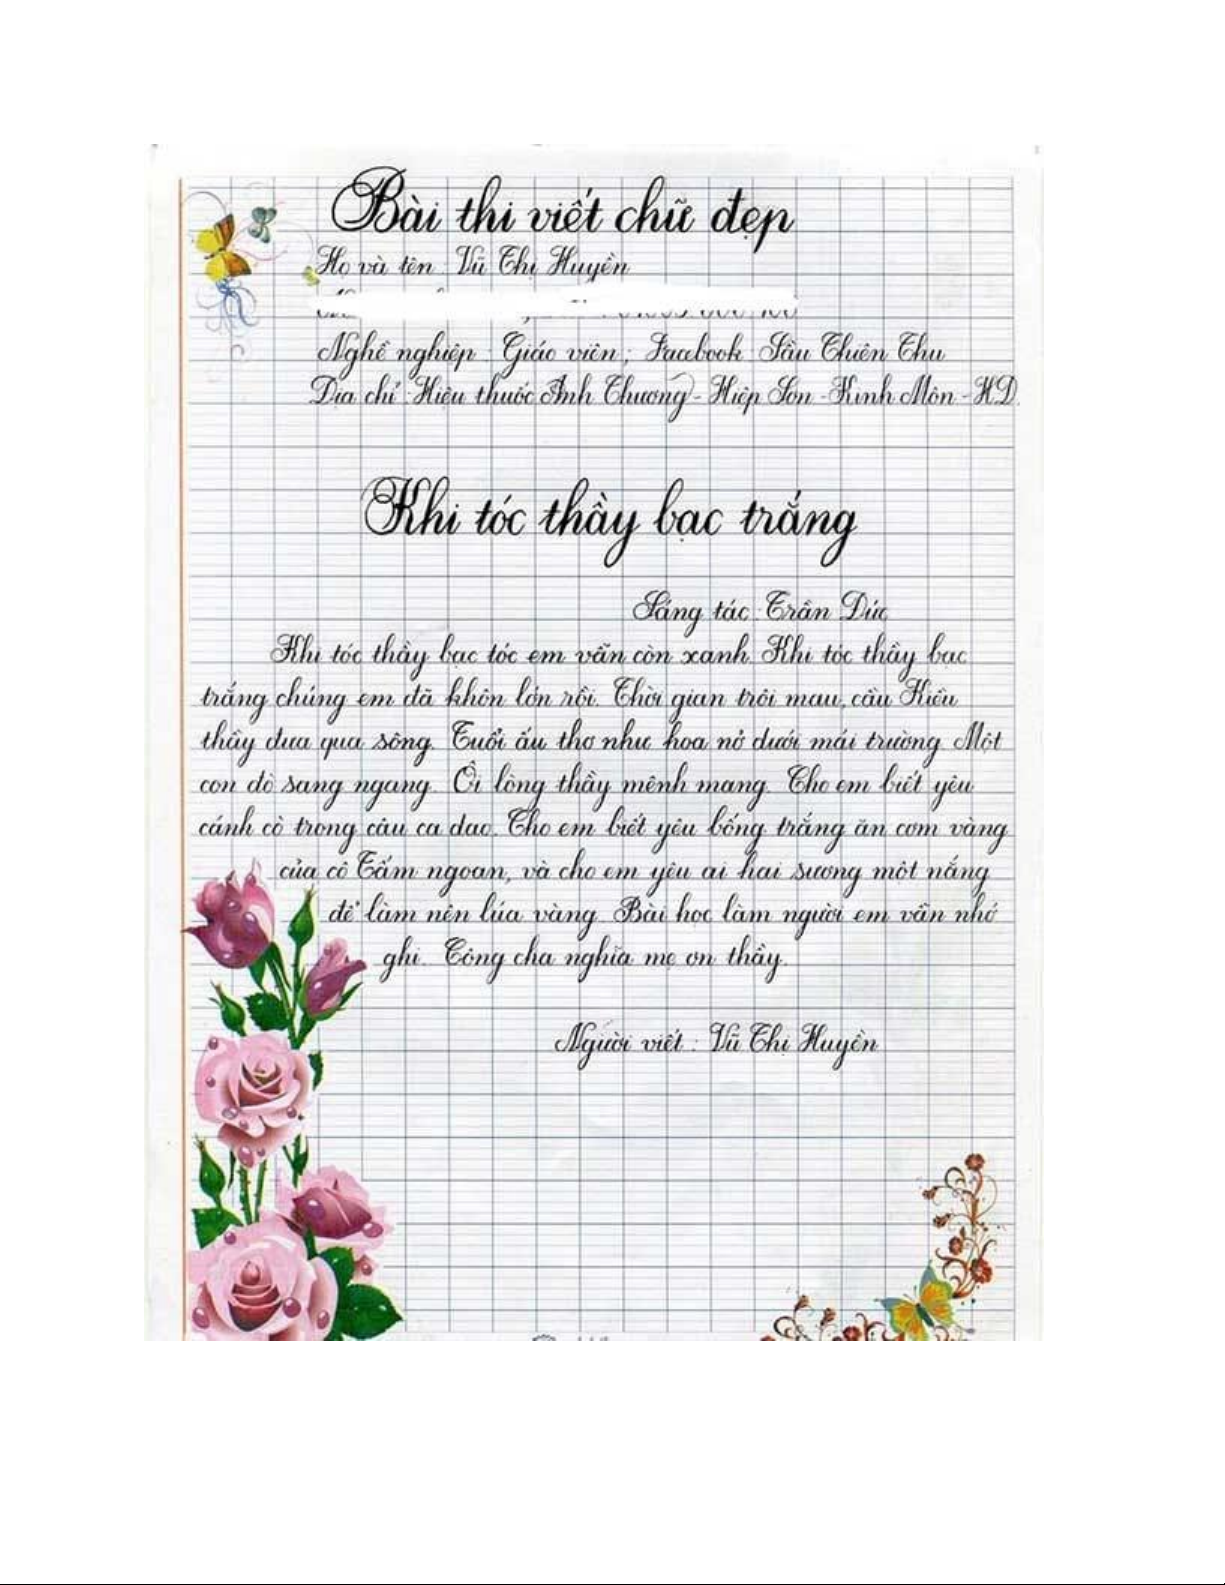 Bài thi viết chữ đẹp
Họ và tên : Vũ Thị Huyền
Nghề nghiệp : Giáo viên ; Facebook Sầu Thiên Thu
Địa chỉ : Hiệu thuốc Ánh Thương - Hiệp Sơn - Kinh Môn - HD.
Khi tóc thầy bạc trắng
Sáng tác : Trần Đức
Khi tóc thầy bạc tóc em vẫn còn xanh. Khi tóc thầy bạc
trắng chúng em đã khôn lớn rồi. Thời gian trôi mau, cầu Kiều
thầy đưa qua sông. Tuổi ấu thơ như hoa nở dưới mái trường. Một
con đò sang ngang. Ôi lòng thầy mênh mang. Cho em biết yêu
cánh cò trong câu ca dao. Cho em biết yêu bống trắng ăn cơm vàng
của cô Tấm ngoan, và cho em yêu ai hai sương một nắng
để làm nên lúa vàng. Bài học làm người em vẫn nhớ
ghi. Công cha nghĩa mẹ ơn thầy.
Người viết : Vũ Thị Huyền